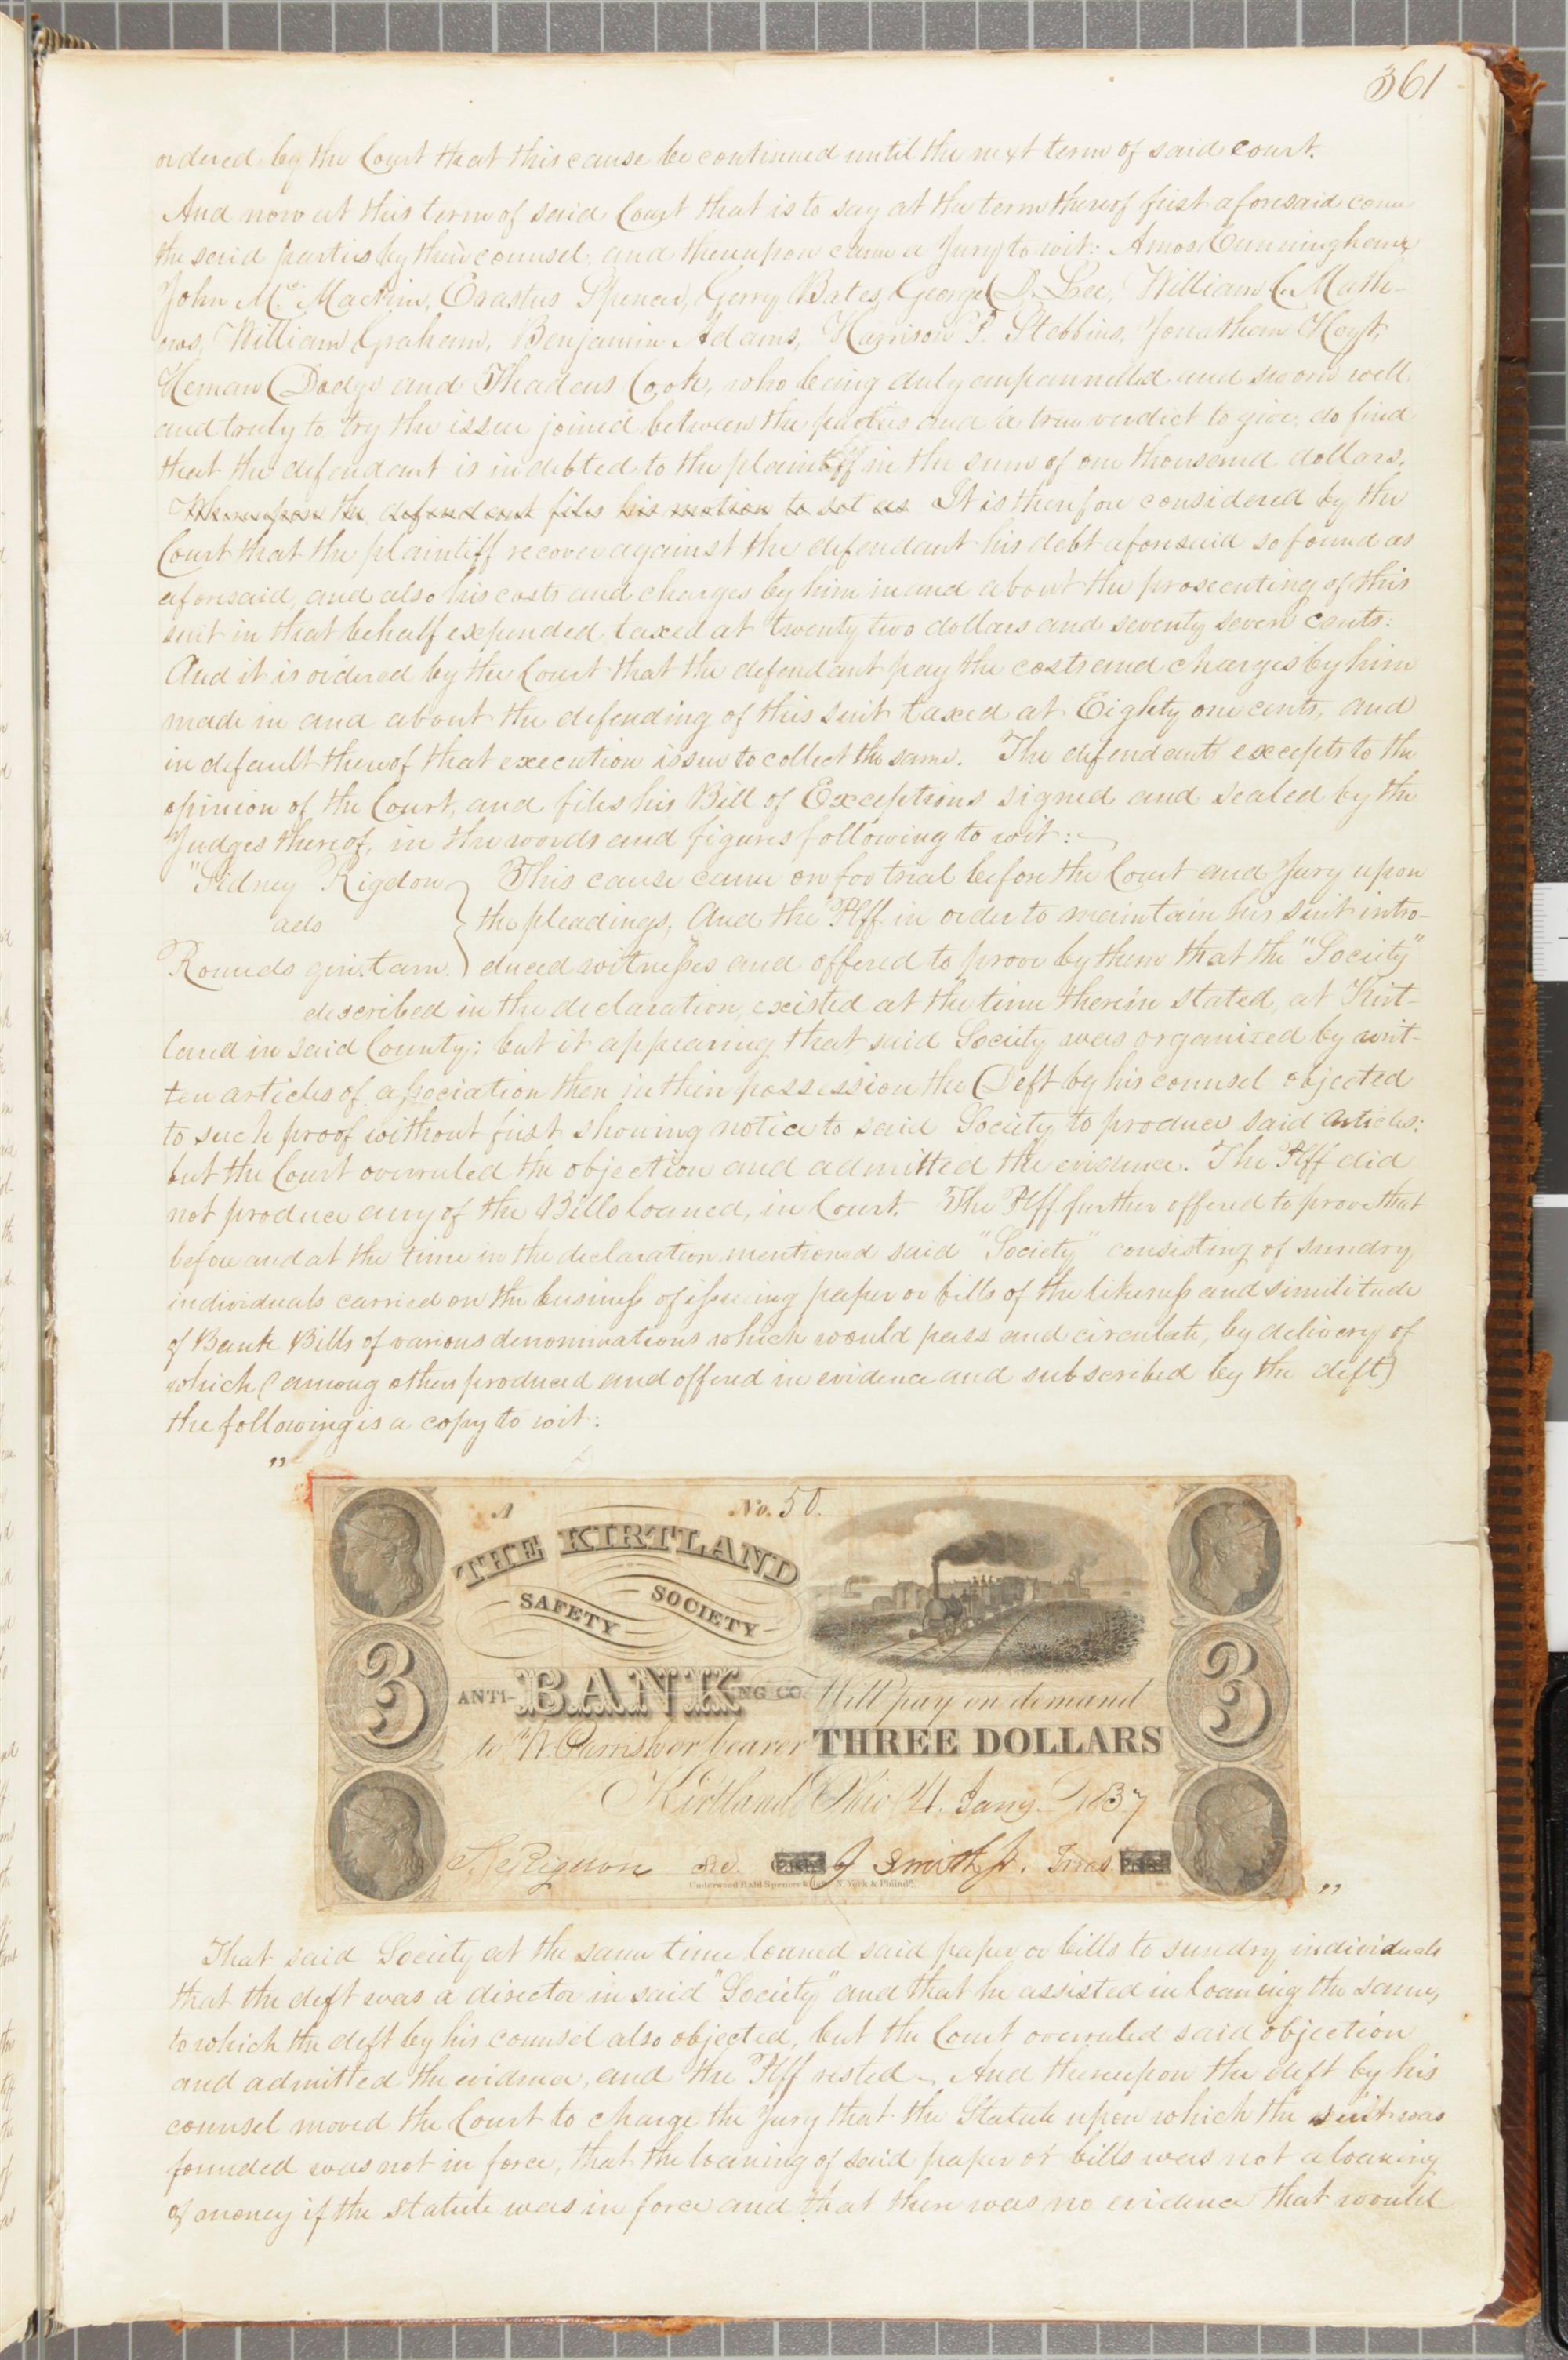 361
ordered by the Court that this cause be continued until the next term of said court.
And now at this term of said Court that is to say at the term thereof first aforesaid come
the said parties by their counsel, and thereupon came a Jury to wit: Amos Cunningham,
John McMackin, Erastus Spencer, Gerry Bates, George D. Lee, William C. Math-
ews, William Graham, Benjamin Adams, Harrison P. Stebbins, Jonathan Hoyt,
Heman Dodge and Thadeus Cook, who being duly empannelled and sworn well
and truly to try the issue joined between the parties and a true verdict to give, do find
that the defendant is indebted to the plaintiff in the sum of one thousand dollars.
Whereupon the defendant files his motion to set as It is therefore considered by the
Court that the plaintiff recover against the defendant his debt aforesaid so found as
aforesaid, and also his costs and charges by him in and about the prosecuting of this
suit in that behalf expended taxed at twenty two dollars and seventy seven cents:
And it is ordered by the Court that the defendant pay the costs and charges by him
made in and about the defending of this suit taxed at Eighty one cents, and
in default thereof that execution issue to collect the same. The defendant excepts to the
opinion of the Court, and files his Bill of Exceptions signed and sealed by the
Judges thereof, in the words and figures following to wit:
"Sidney Rigdon } This cause came on for trial before the Court and Jury upon
ads } the pleadings, And the Plff in order to maintain his suit intro-
Rounds qui. tam. } duced witnesses and offered to prove by them that the "Society"
described in the declaration, existed at the time therein stated, at Kirt-
land in said County; but it appearing that said Society was organized by writ-
ten articles of association then in their possession the Deft by his counsel objected
to such proof without first showing notice to said Society to produce said Articles:
but the Court overruled the objection and admitted the evidence. The Plff did
not produce any of the Bills loaned, in Court. The Plff further offered to prove that
before and at the time in the declaration mentioned said "Society" consisting of sundry
individuals carried on the business of issueing paper or bills of the likeness and similitude
of Bank Bills of various denominations which would pass and circulate, by delivery of
which (among others produced and offered in evidence and subscribed by the deft)
the following is a copy to wit:
"
A No. 50.
THE KIRTLAND
SAFETY SOCIETY
ANTI-BANKING CO. Will pay on demand
to W. Parrish or bearer THREE DOLLARS
Kirtland Ohio 4. Jany. 1837
S Rigdon Sec. J Smith Jr. Treas.
Underwood Bald Spencer & Hufty N. York & Philada.
3
3
"
That said Society at the same time loaned said paper or bills to sundry individuals
that the deft was a director in said "Society" and that he assisted in loaning the same,
to which the deft by his counsel also objected, but the Court overruled said objection
and admitted the evidence, and the Plff rested. And thereupon the deft by his
counsel moved the Court to charge the Jury that the Statute upon which the suit was
founded was not in force, that the loaning of said paper or bills was not a loaning
of money if the statute was in force and that there was no evidence that would